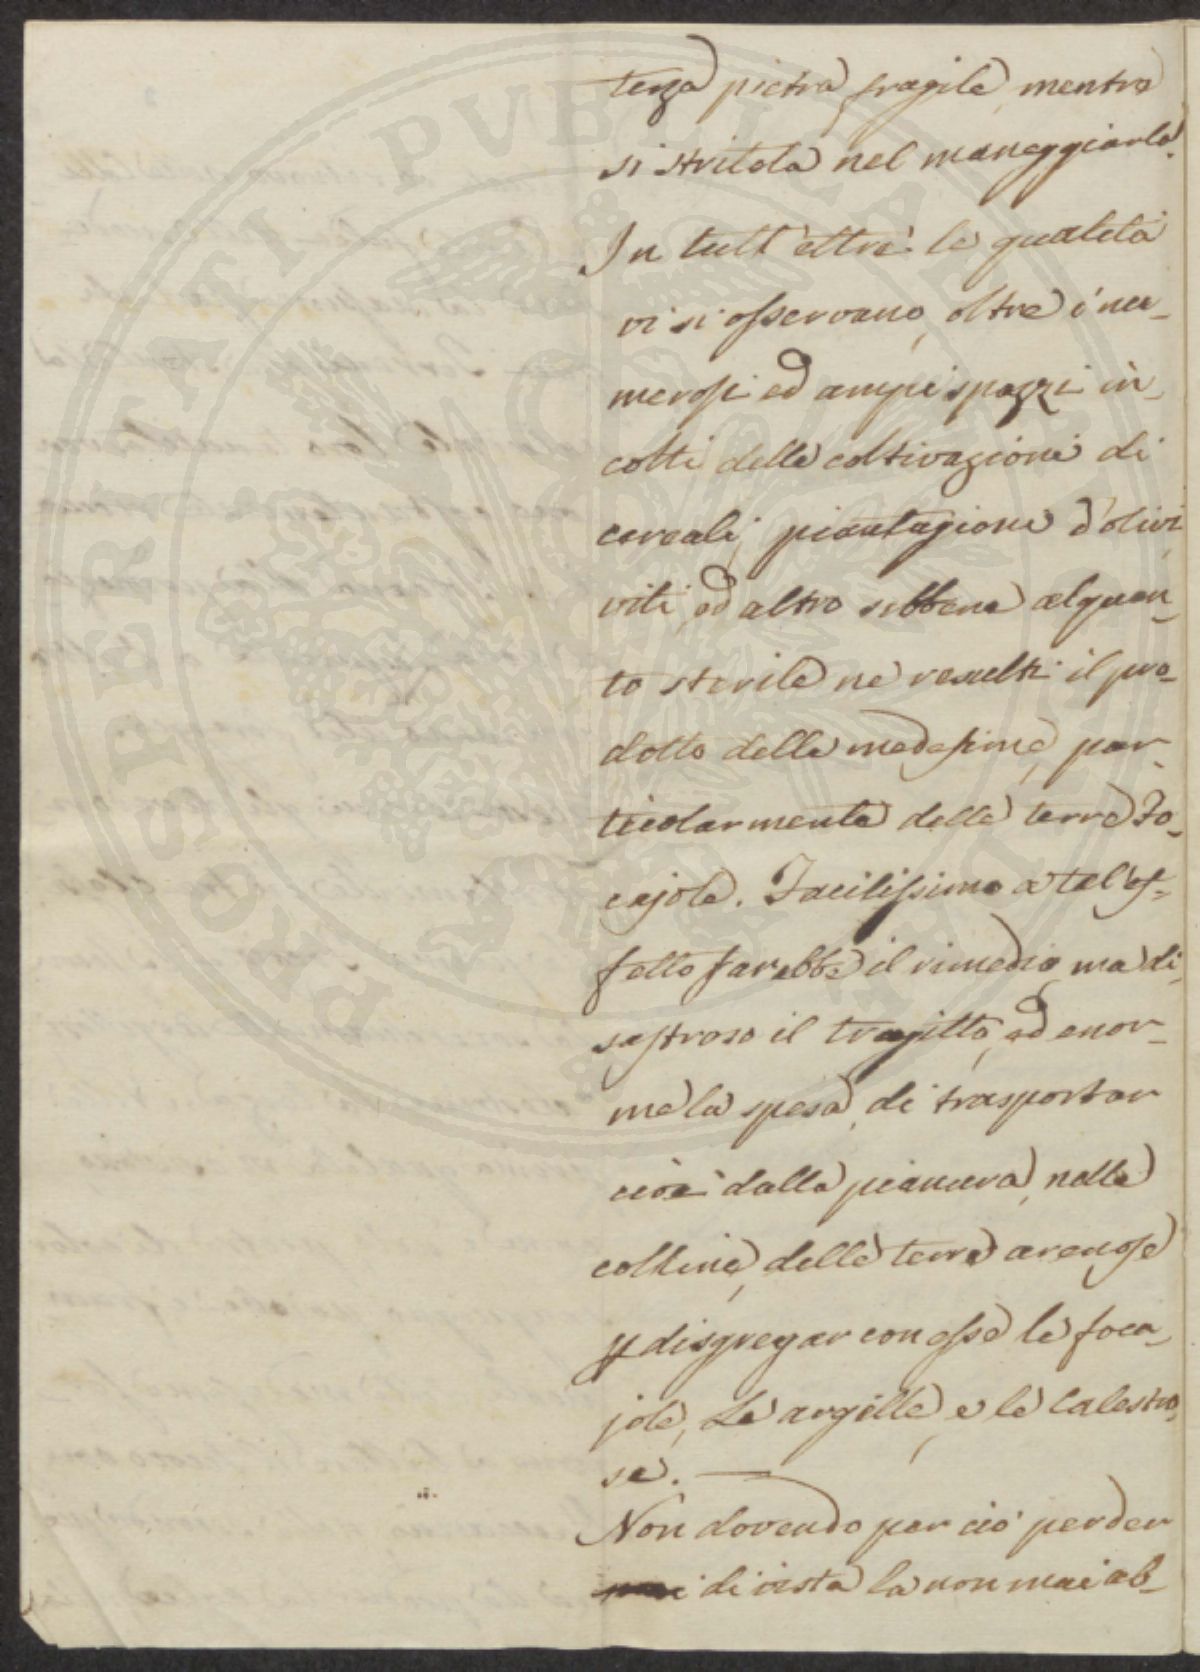 terza pietra fragile, mentre
si stritola nel maneggiarla.
In tutt'ettrè le qualità
vi si osservano, oltre i nu-
merosi ed ampi spazzi in-
colti delle coltivazioni di
cereali, piantagioni d'olivi
viti, ed altro sebbene alquan-
to sterile ne resulti il pro-
dotto delle medesime, par-
ticolarmente delle terre Fo-
cajole. Facilissimo a tal'ef-
fetto sarebbe il rimedio, ma di-
sastroso il tragitto, ed enor-
me la spesa, di trasportar
cioè dalla pianura, nelle
colline, delle terre arenose
p disgregar con esse le foca-
jole, Le argille, e le Calestro-
se.
Non dovendo per ciò perder
di vista la non mai ab-
PROSPERITATI PUBLICAE AUGENDAE